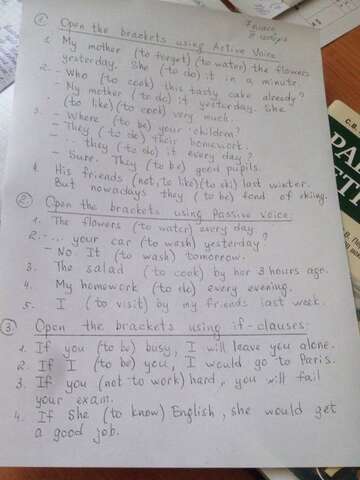 ① Open the brackets using Active Voice.
1. My mother (to forget) (to water) the flowers
yesterday. She (to do) it in a minute.
2. - Who (to cook) this tasty cake already?
- My mother (to do) it yesterday. She
(to like) (to cook) very much.
3. - Where (to be) your children?
- They (to do) their homework.
- ... they (to do) it every day?
- Sure. They (to be) good pupils.
4. His friends (not to like) (to ski) last winter.
But nowadays they (to be) fond of skiing.
② Open the brackets using Passive Voice:
1. The flowers (to water) every day.
2. - ... your car (to wash) yesterday?
- No. It (to wash) tomorrow.
3. The salad (to cook) by her 3 hours ago.
4. My homework (to do) every evening.
5. I (to visit) by my friends last week.
③ Open the brackets using if-clauses:
1. If you (to be) busy, I will leave you alone.
2. If I (to be) you, I would go to Paris.
3. If you (not to work) hard, you will fail
your exam.
4. If she (to know) English, she would get
a good job.